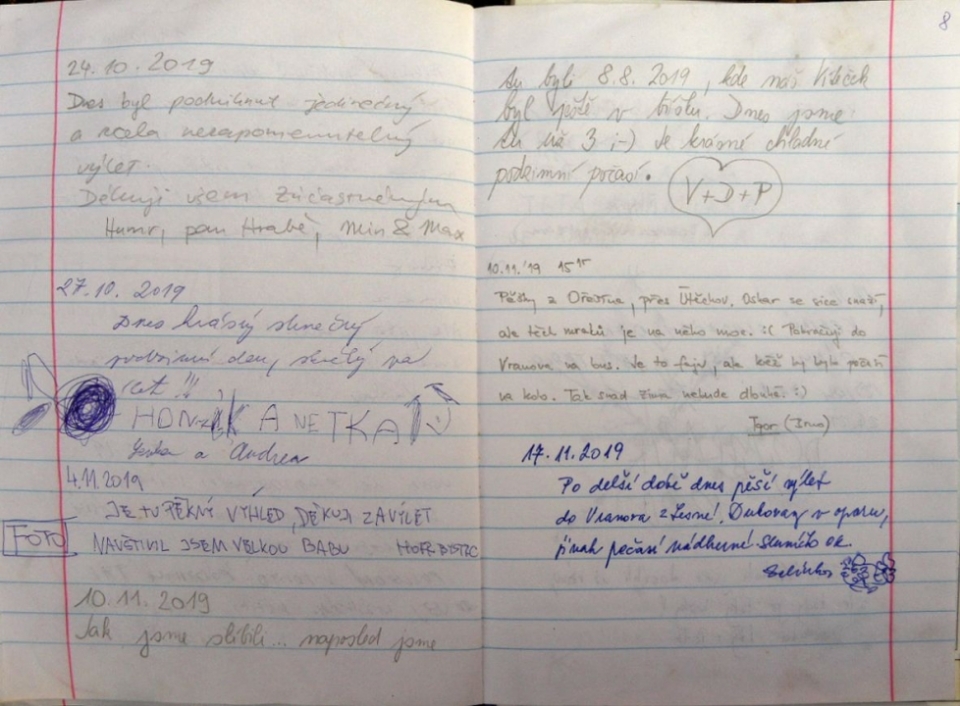 24.10.2019
Dnes byl podniknut jedinečný
a zcela nezapomenutelný
výlet.
Děkuji všem zúčastněným
Humr, pan Hrabě, Min & Max
27.10.2019
Dnes krásný slunečný
podzimní den, skvělý na
HONZÍK ANETKA
a Andrea
4.11.2019
JE TU PĚKNÝ VÝHLED, DĚKUJI ZA VÝLET
FOTO
NAVŠTÍVIL JSEM VELKOU BABU
10.11.2019
Jak jsme slíbili... naposled jsme
8
tu byli 8.8.2019, kde náš Víteček
byl ještě v bříšku. Dnes jsme
tu už 3 ;-) Je krásné chladné
podzimní počasí.
V+D+P
10.11.'19 15 15
Pěšky z Ořešína, přes Útěchov. Oskar se sice snaží,
ale těch mraků je na něho moc. :( Pokračuji do
Vranova na bus. Je to fajn, ale kéž by bylo počasí
na kolo. Tak snad zima nebude dlouhá. :)
Igor (Brno)
17.11.2019
Po delší době dnes pěší výlet
do Vranova z Lesné. Dukovany v oparu,
jinak počasí nádherné sluníčko ok.